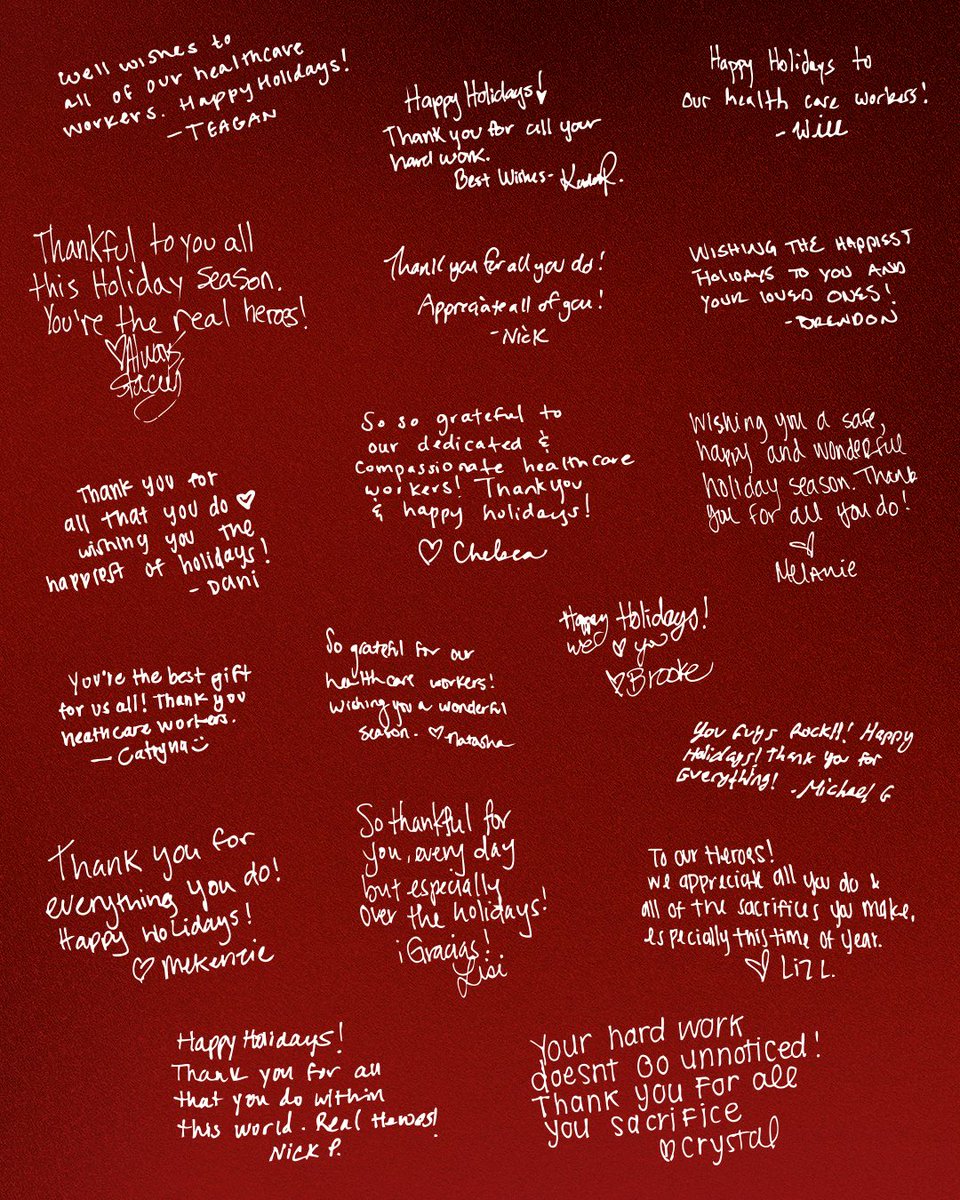 Well wishes to
all of our healthcare
workers. Happy Holidays!
- TEAGAN
Happy Holidays!
Thank you for all your
hard work.
Best Wishes-
Happy Holidays to
our health care workers!
- Will
Thankful to you all
this Holiday season.
You're the real heroes!
♡Always
Stacey
Thank you for all you do!
Appreciate all of you!
- Nick
WISHING THE HAPPIEST
HOLIDAYS TO YOU AND
YOUR LOVED ONES!
- BRENDON
Thank you for
all that you do ♡
wishing you the
happiest of holidays!
- Dani
So so grateful to
our dedicated &
compassionate healthcare
workers! Thank you
& happy holidays!
♡ Chelsea
Wishing you a safe,
happy and wonderful
holiday season. Thank
you for all you do!
♡
Melanie
You're the best gift
for us all! Thank you
heathcare workers.
— Catryna☺
So grateful for our
healthcare workers!
Wishing you a wonderful
season. ♡Natasha
Happy Holidays!
We ♡ you
♡Brooke
You Guys Rock!!! Happy
Holidays! Thank you for
Everything! - Michael G
Thank you for
everything you do!
Happy Holidays!
♡ McKenzie
So thankful for
you, every day
but especially
over the holidays!
¡Gracias!
Lisi
To our Heroes!
We appreciate all you do &
all of the sacrifices you make,
especially this time of year.
♡ Liz L.
Happy Holidays!
Thank you for all
that you do within
this world. Real Heroes!
Nick P.
Your hard work
doesnt Go unnoticed!
Thank you for all
you sacrifice
♡Crystal